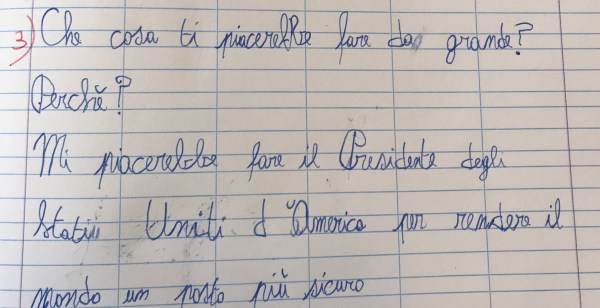 3) Che cosa ti piacerebbe fare da grande?
Perchè?
Mi piacerebbe fare il Presidente degli
Stati Uniti d'America per rendere il
mondo un posto più sicuro